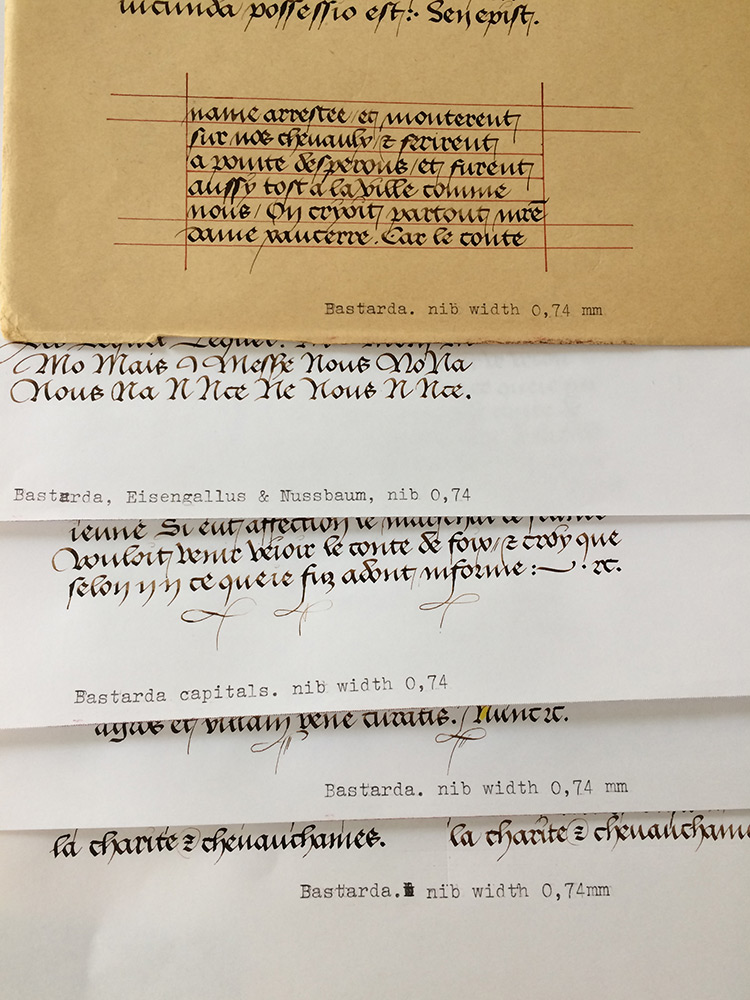 iucunda possessio est:· Sen epist.
name arrestee / et monterent
sur nos chevaulx & ferirent
a pointe desperons / et furent
aussy tost a la ville comme
nous / On cryoit partout nre
dame Car le conte
Bastarda. nib width 0,74 mm
Mo Mais Messe Nous No Na
Nous Na N Nce Ne Nous N Nce.
Bastarda, Eisengallus & Nussbaum, nib 0,74
ienne Si eut affection le
Vouloit venir veioir le conte de foix / & croy que
selon ce que ie fuz adont informe :~ · &c.
Bastarda capitals. nib width 0,74
et curatis. / Nunc &c.
Bastarda. nib width 0,74 mm
la charite & chevauchames. la charite & chevauchame
Bastarda. nib width 0,74mm